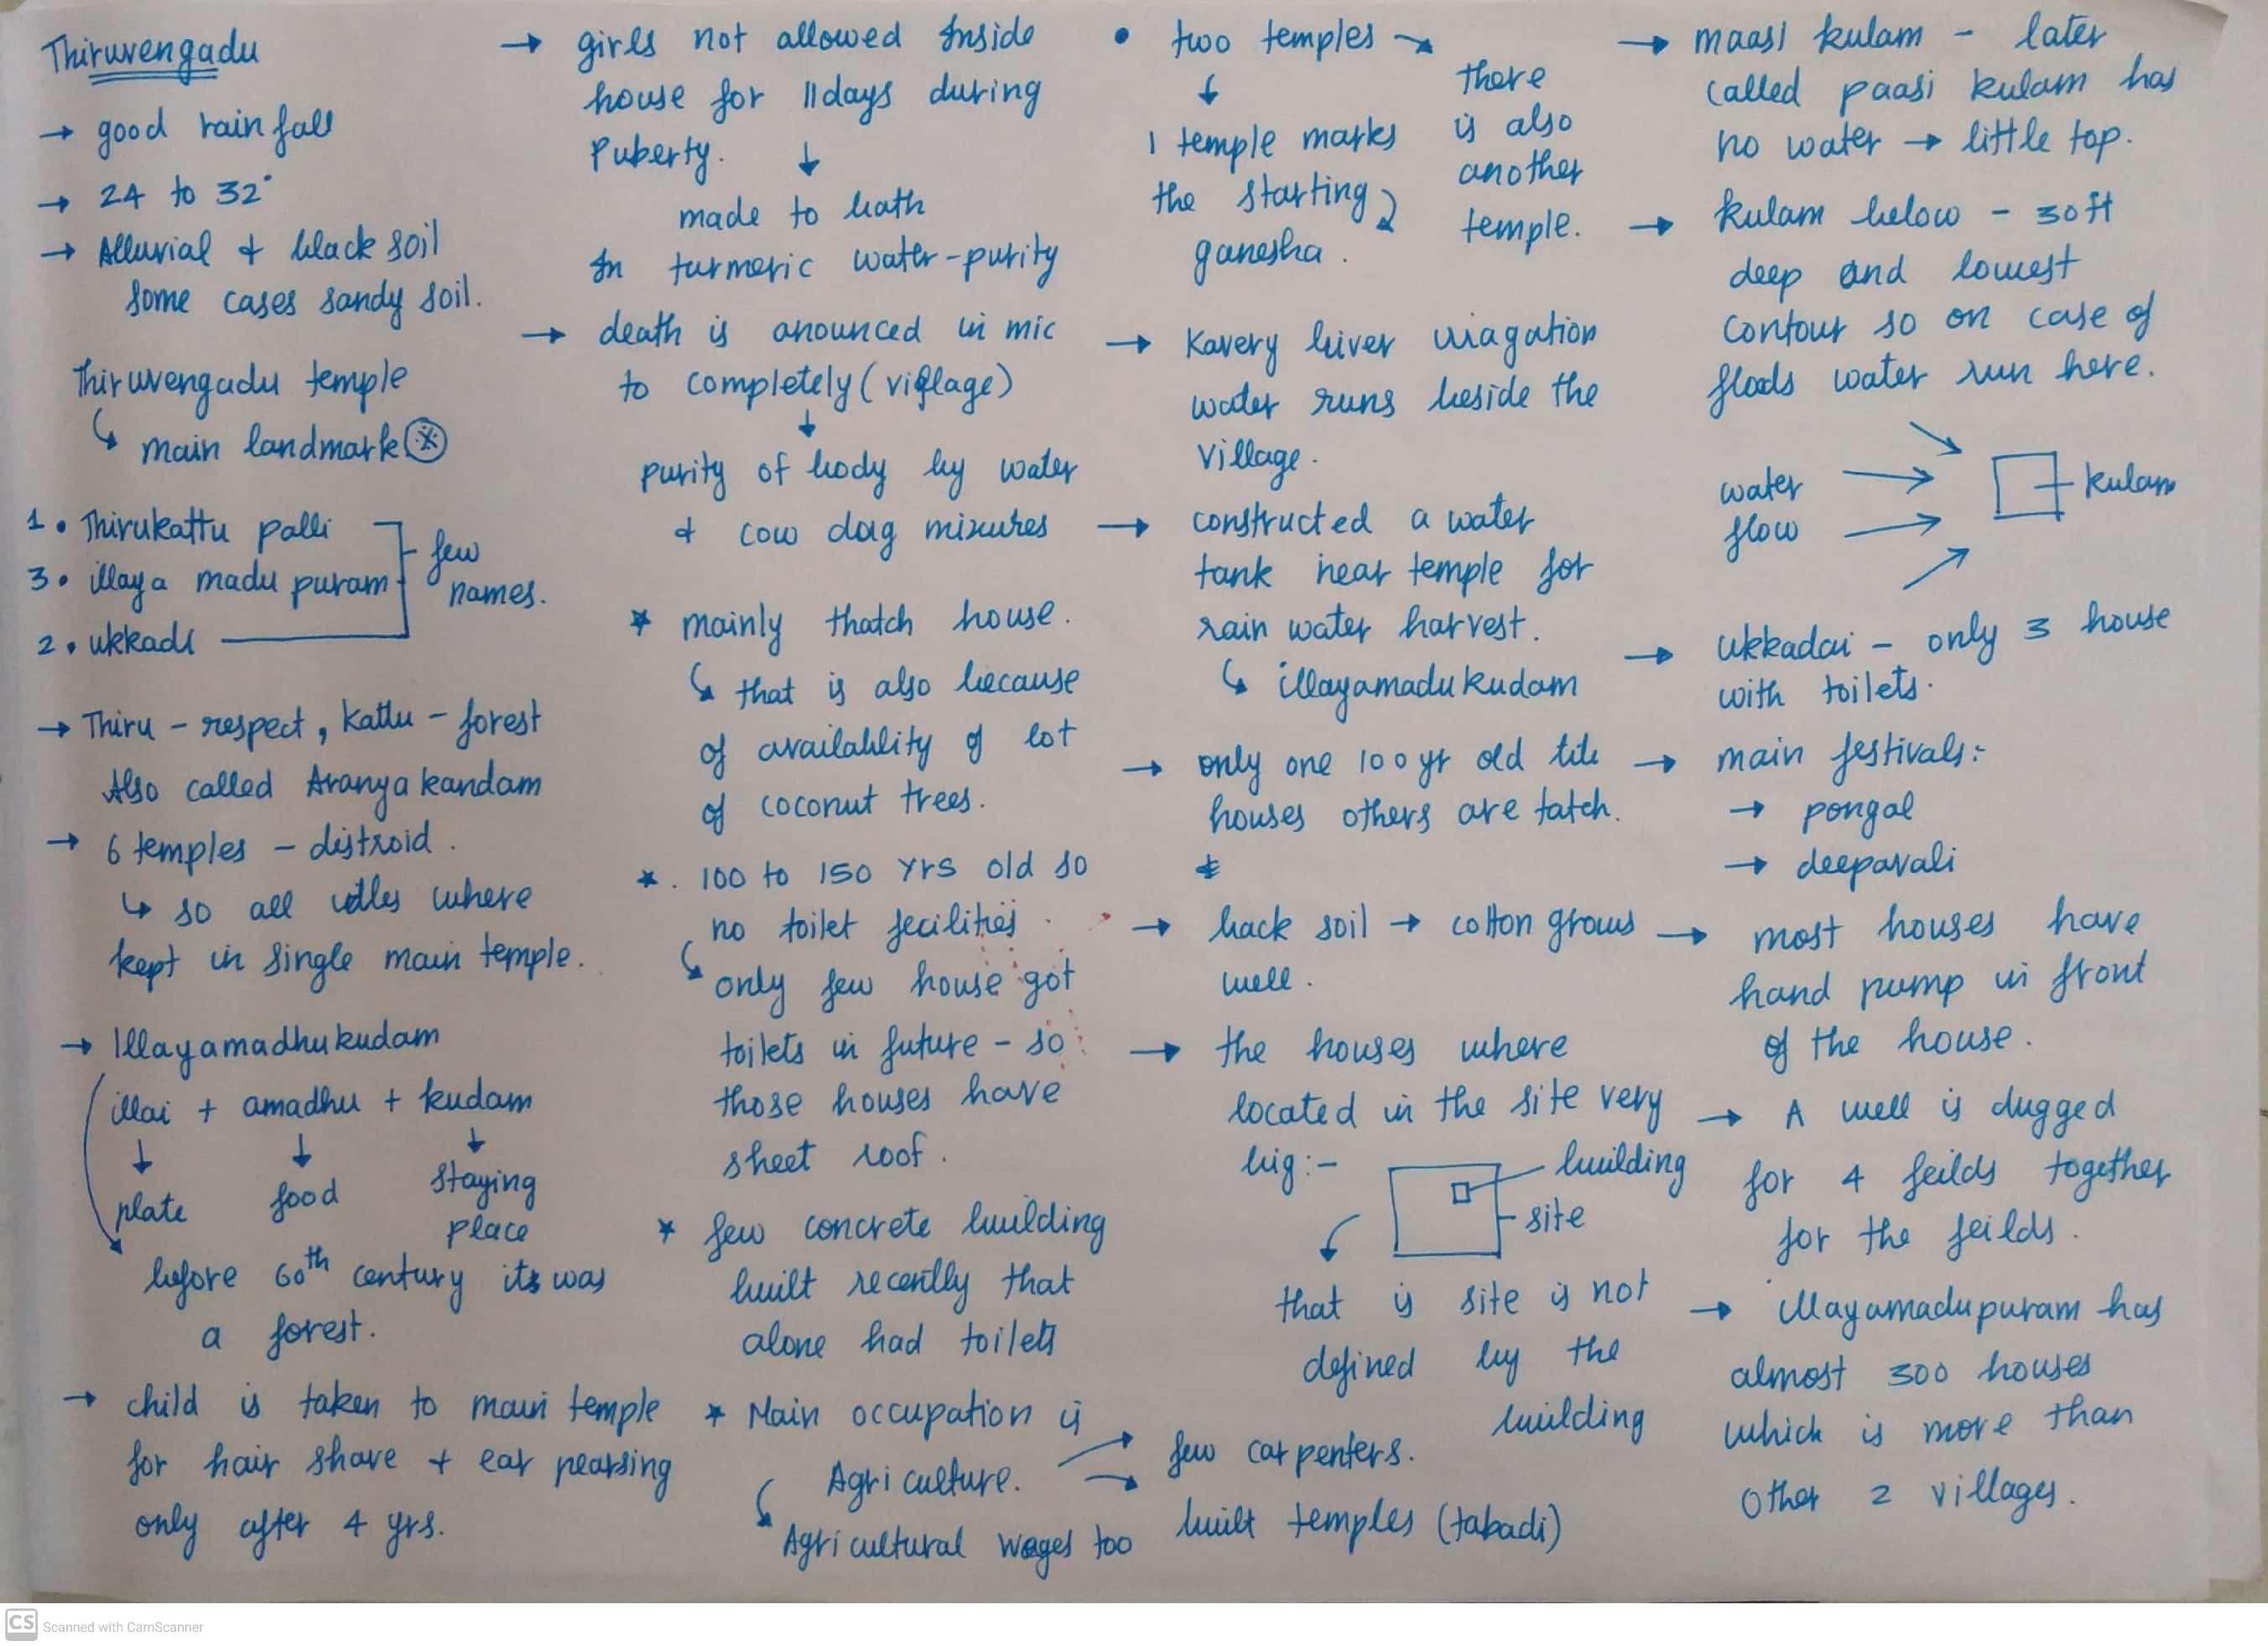 Thiruvengadu
→ good rainfall
→ 24 to 32°
→ Alluvial & black soil
some cases sandy soil.
Thiruvengadu temple
↳ main landmark
1. Thirukattu palli
3. illaya madu puram
2. ukkadi
few
names.
→ Thiru - respect, Kattu - forest
Also called Aranya kandam
→ 6 temples - distroid.
↳ so all idles where
kept in single main temple.
→ Illayamadhukudam
illai + amadhu + kudam
↓ ↓ ↓
plate food staying
place
before 60th century its was
a forest.
→ child is taken to main temple
for hair shave + ear pearsing
only after 4 yrs.
→ girls not allowed Inside
house for 11days during
Puberty. ↓
made to bath
In turmeric water-purity
→ death is anounced in mic
to completely (village)
↓
purity of body by water
& cow dag mixures
* mainly thatch house.
↳ that is also because
of availablity of lot
of coconut trees.
*. 100 to 150 yrs old so
no toilet fecilities
↳ only few house got
toilets in future - so
those houses have
sheet roof.
* few concrete building
built recently that
alone had toilets
* Main occupation is
Agriculture.
Agricultural wages too
→ few carpenters.
→ built temples (tabadi)
• two temples →
↓
1 temple marks
the starting
ganesha.
there
is also
another
temple.
→ Kavery liver uriagation
water runs beside the
village.
→ constructed a water
tank near temple for
rain water harvest.
↳ illayamadukudam
→ only one 100 yr old tile
houses others are tatch.
→ back soil → cotton grows
well.
→ the houses where
located in the site very
big:-
building
site
that is site is not
defined by the
building
→ maasi kulam - later
called paasi kulam has
no water → little top.
→ kulam below - 30ft
deep and lowest
contour so on case of
floods water run here.
water
flow
kulam
→ ukkadai - only 3 house
with toilets.
→ main festivals:-
→ pongal
→ deepavali
→ most houses have
hand pump in front
of the house.
→ A well is dugged
for 4 feilds together
for the feilds.
→ illayamadupuram has
almost 300 houses
which is more than
other 2 villages.
CS Scanned with CamScanner